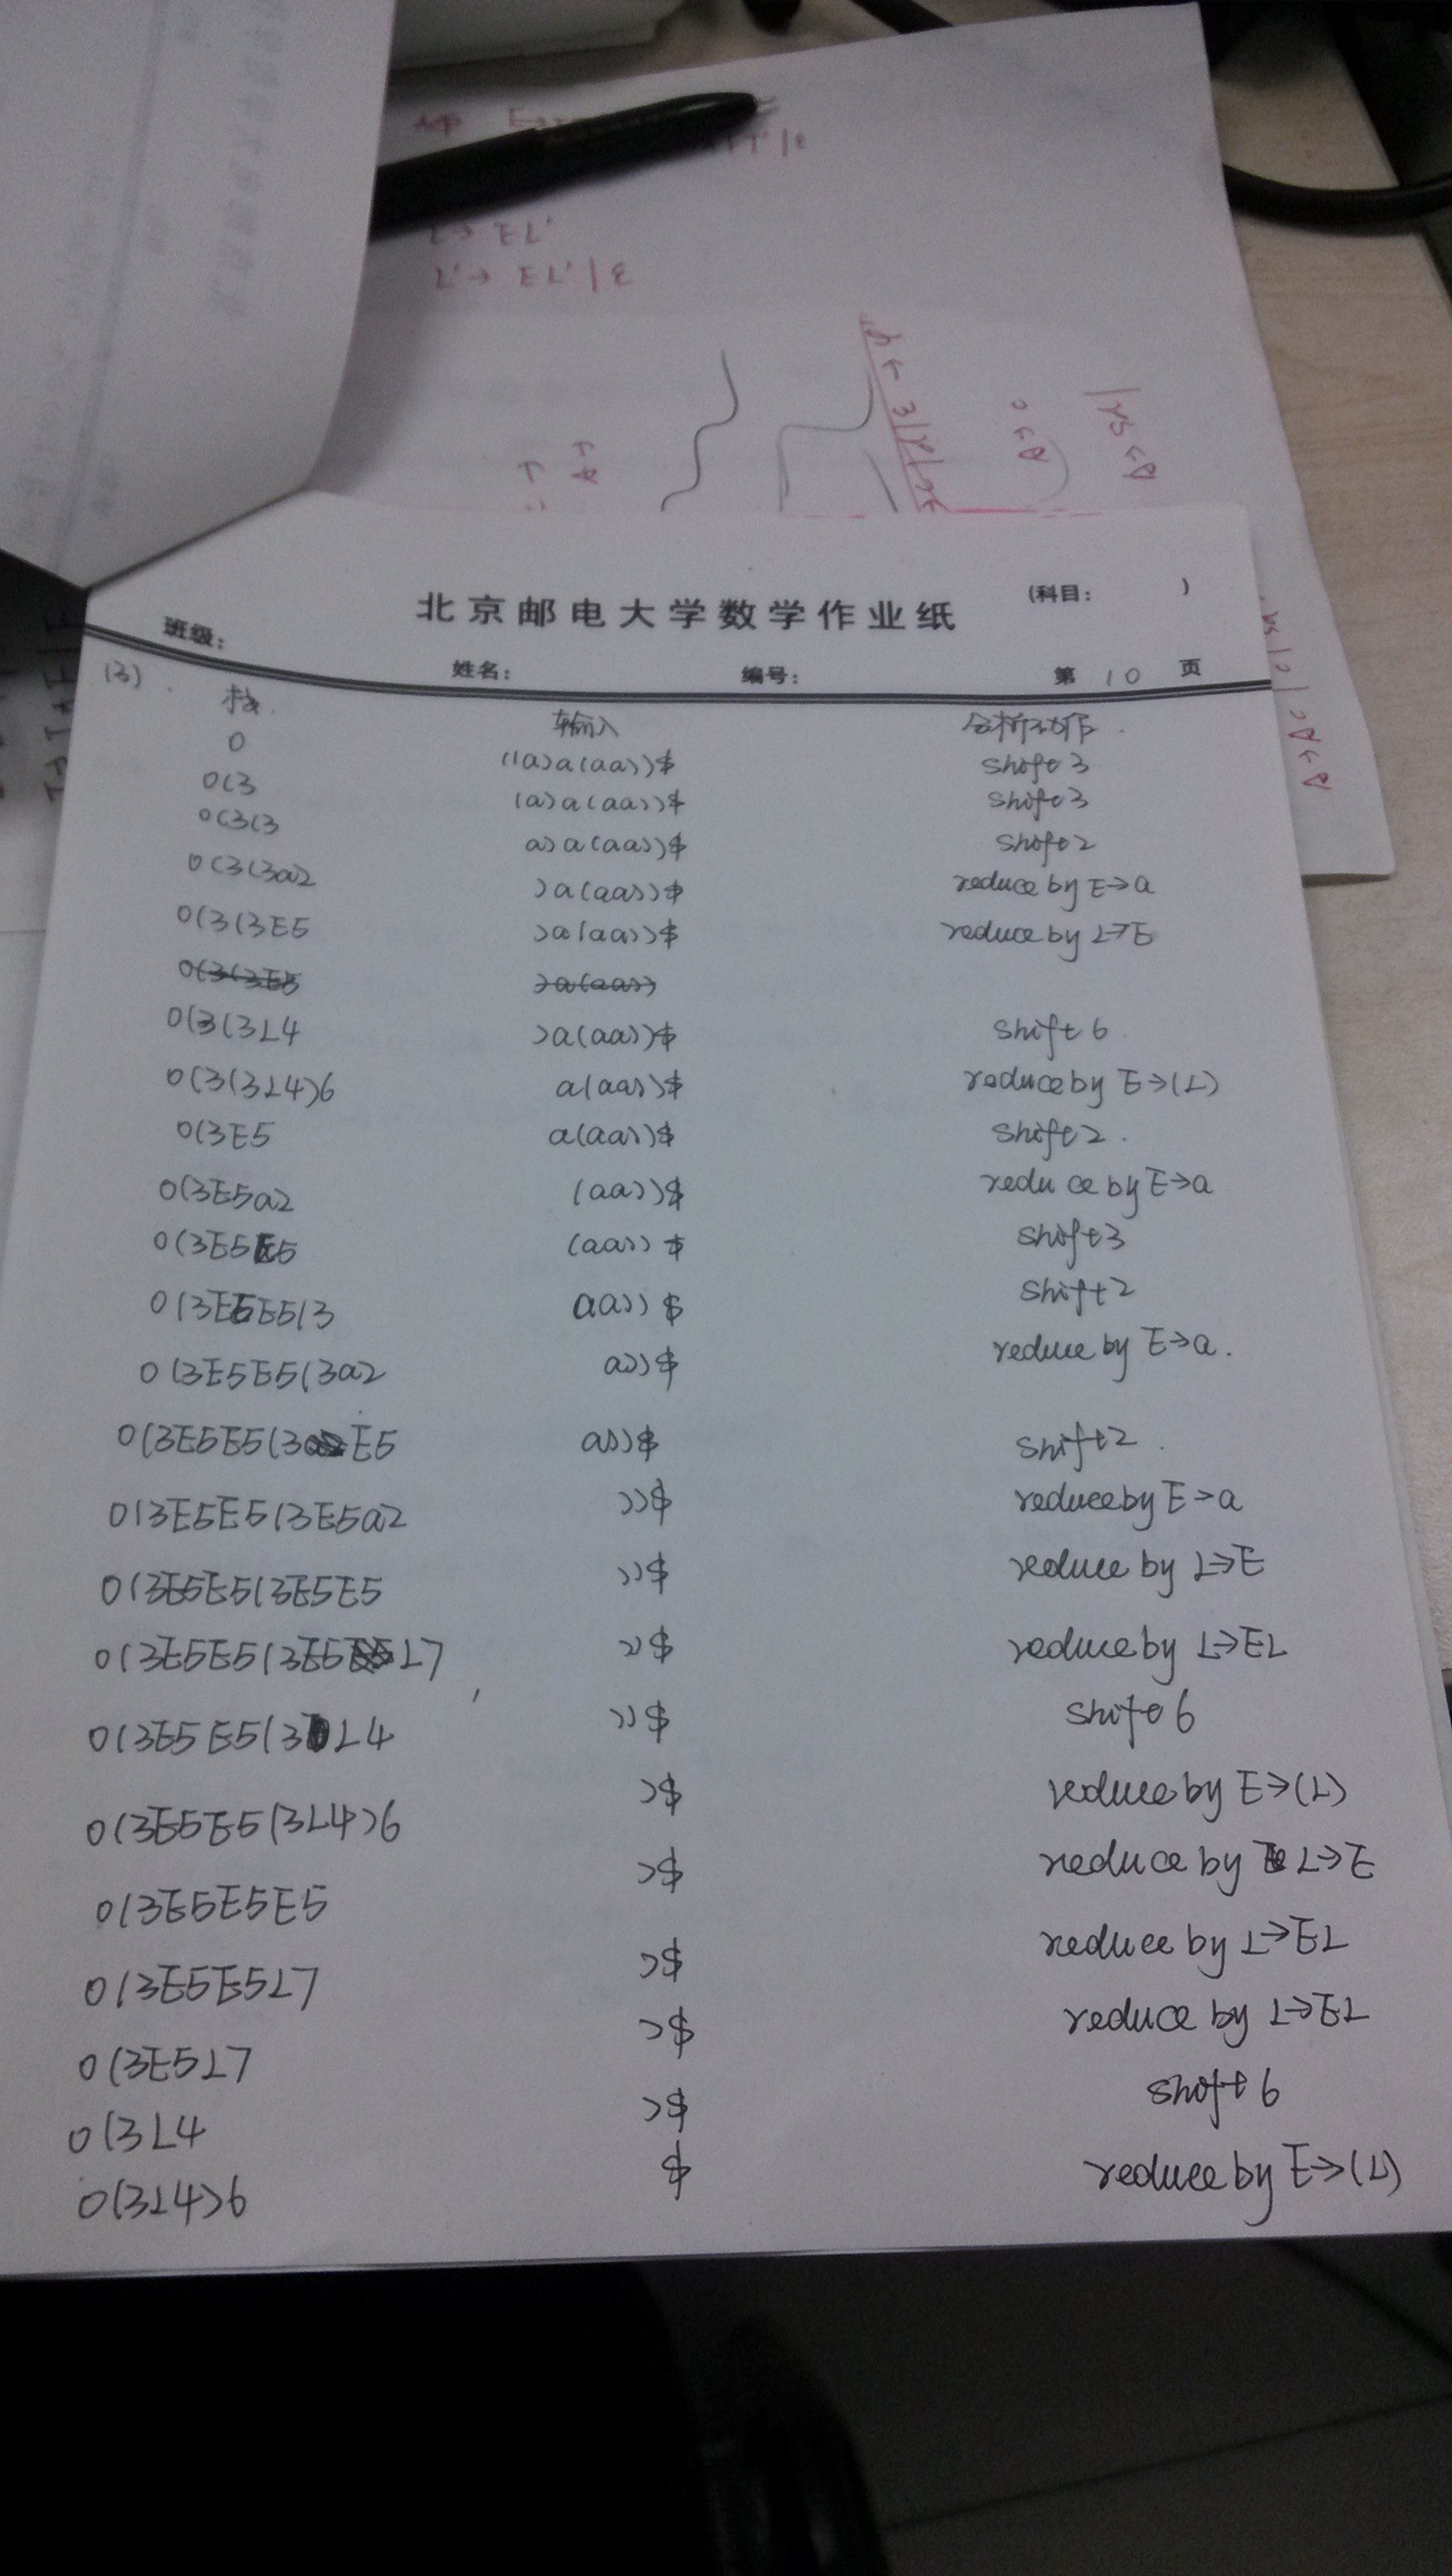 L → EL'
L' → EL' | ε
北京邮电大学数学作业纸 (科目: )
班级: 姓名: 编号: 第 10 页
(3).
栈. 输入 分析动作.
0 ((a)a(aa))$ shift 3
0(3 (a)a(aa))$ shift 3
0(3(3 a)a(aa))$ shift 2
0(3(3a2 )a(aa))$ reduce by E→a
0(3(3E5 )a(aa))$ reduce by L→E
0(3(3E5 )a(aa))
0(3(3L4 )a(aa))$ shift 6
0(3(3L4)6 a(aa))$ reduce by E→(L)
0(3E5 a(aa))$ shift 2.
0(3E5a2 (aa))$ reduce by E→a
0(3E5E5 (aa))$ shift 3
0(3E5E5(3 aa))$ shift 2
0(3E5E5(3a2 a))$ reduce by E→a.
0(3E5E5(3E5 a))$ shift 2.
0(3E5E5(3E5a2 ))$ reduce by E→a
0(3E5E5(3E5E5 ))$ reduce by L→E
0(3E5E5(3E5L7 ))$ reduce by L→EL
0(3E5E5(3L4 ))$ shift 6
0(3E5E5(3L4)6 )$ reduce by E→(L)
0(3E5E5E5 )$ reduce by L→E
0(3E5E5L7 )$ reduce by L→EL
0(3E5L7 )$ reduce by L→EL
0(3L4 )$ shift 6
0(3L4)6 $ reduce by E→(L)